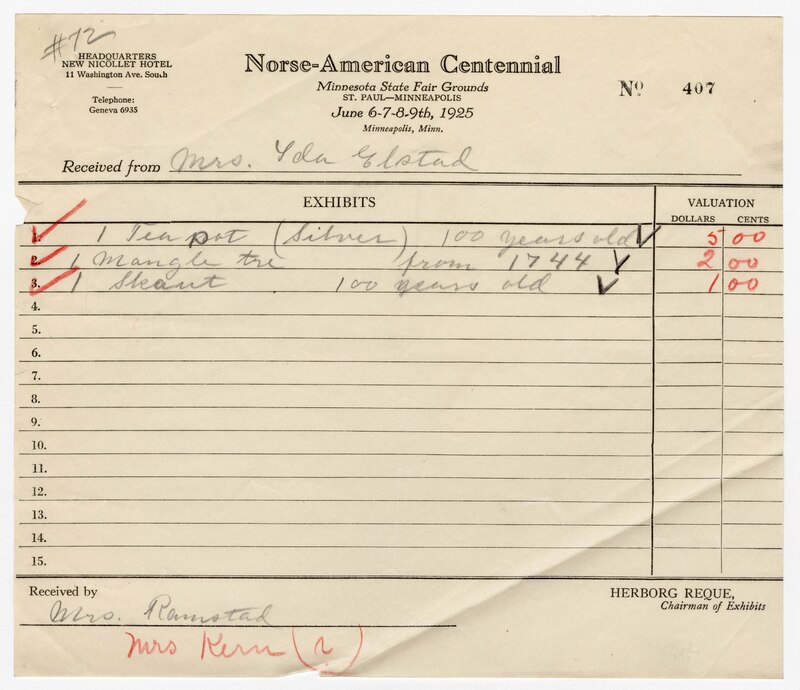 #72
HEADQUARTERS
NEW NICOLLET HOTEL
11 Washington Ave. South
Telephone:
Geneva 6935
Norse-American Centennial
Minnesota State Fair Grounds
ST. PAUL—MINNEAPOLIS
June 6-7-8-9th, 1925
Minneapolis, Minn.
No 407
Received from Mrs. Ida Elstad
EXHIBITS VALUATION
DOLLARS CENTS
1. 1 Tea pot (Silver) 100 years old 5 00
2. 1 Mangle tre from 1744 2 00
3. 1 Skaut 100 years old 1 00
4.
5.
6.
7.
8.
9.
10.
11.
12.
13.
14.
15.
Received by
Mrs. Ramstad
Mrs Kern (2)
HERBORG REQUE,
Chairman of Exhibits